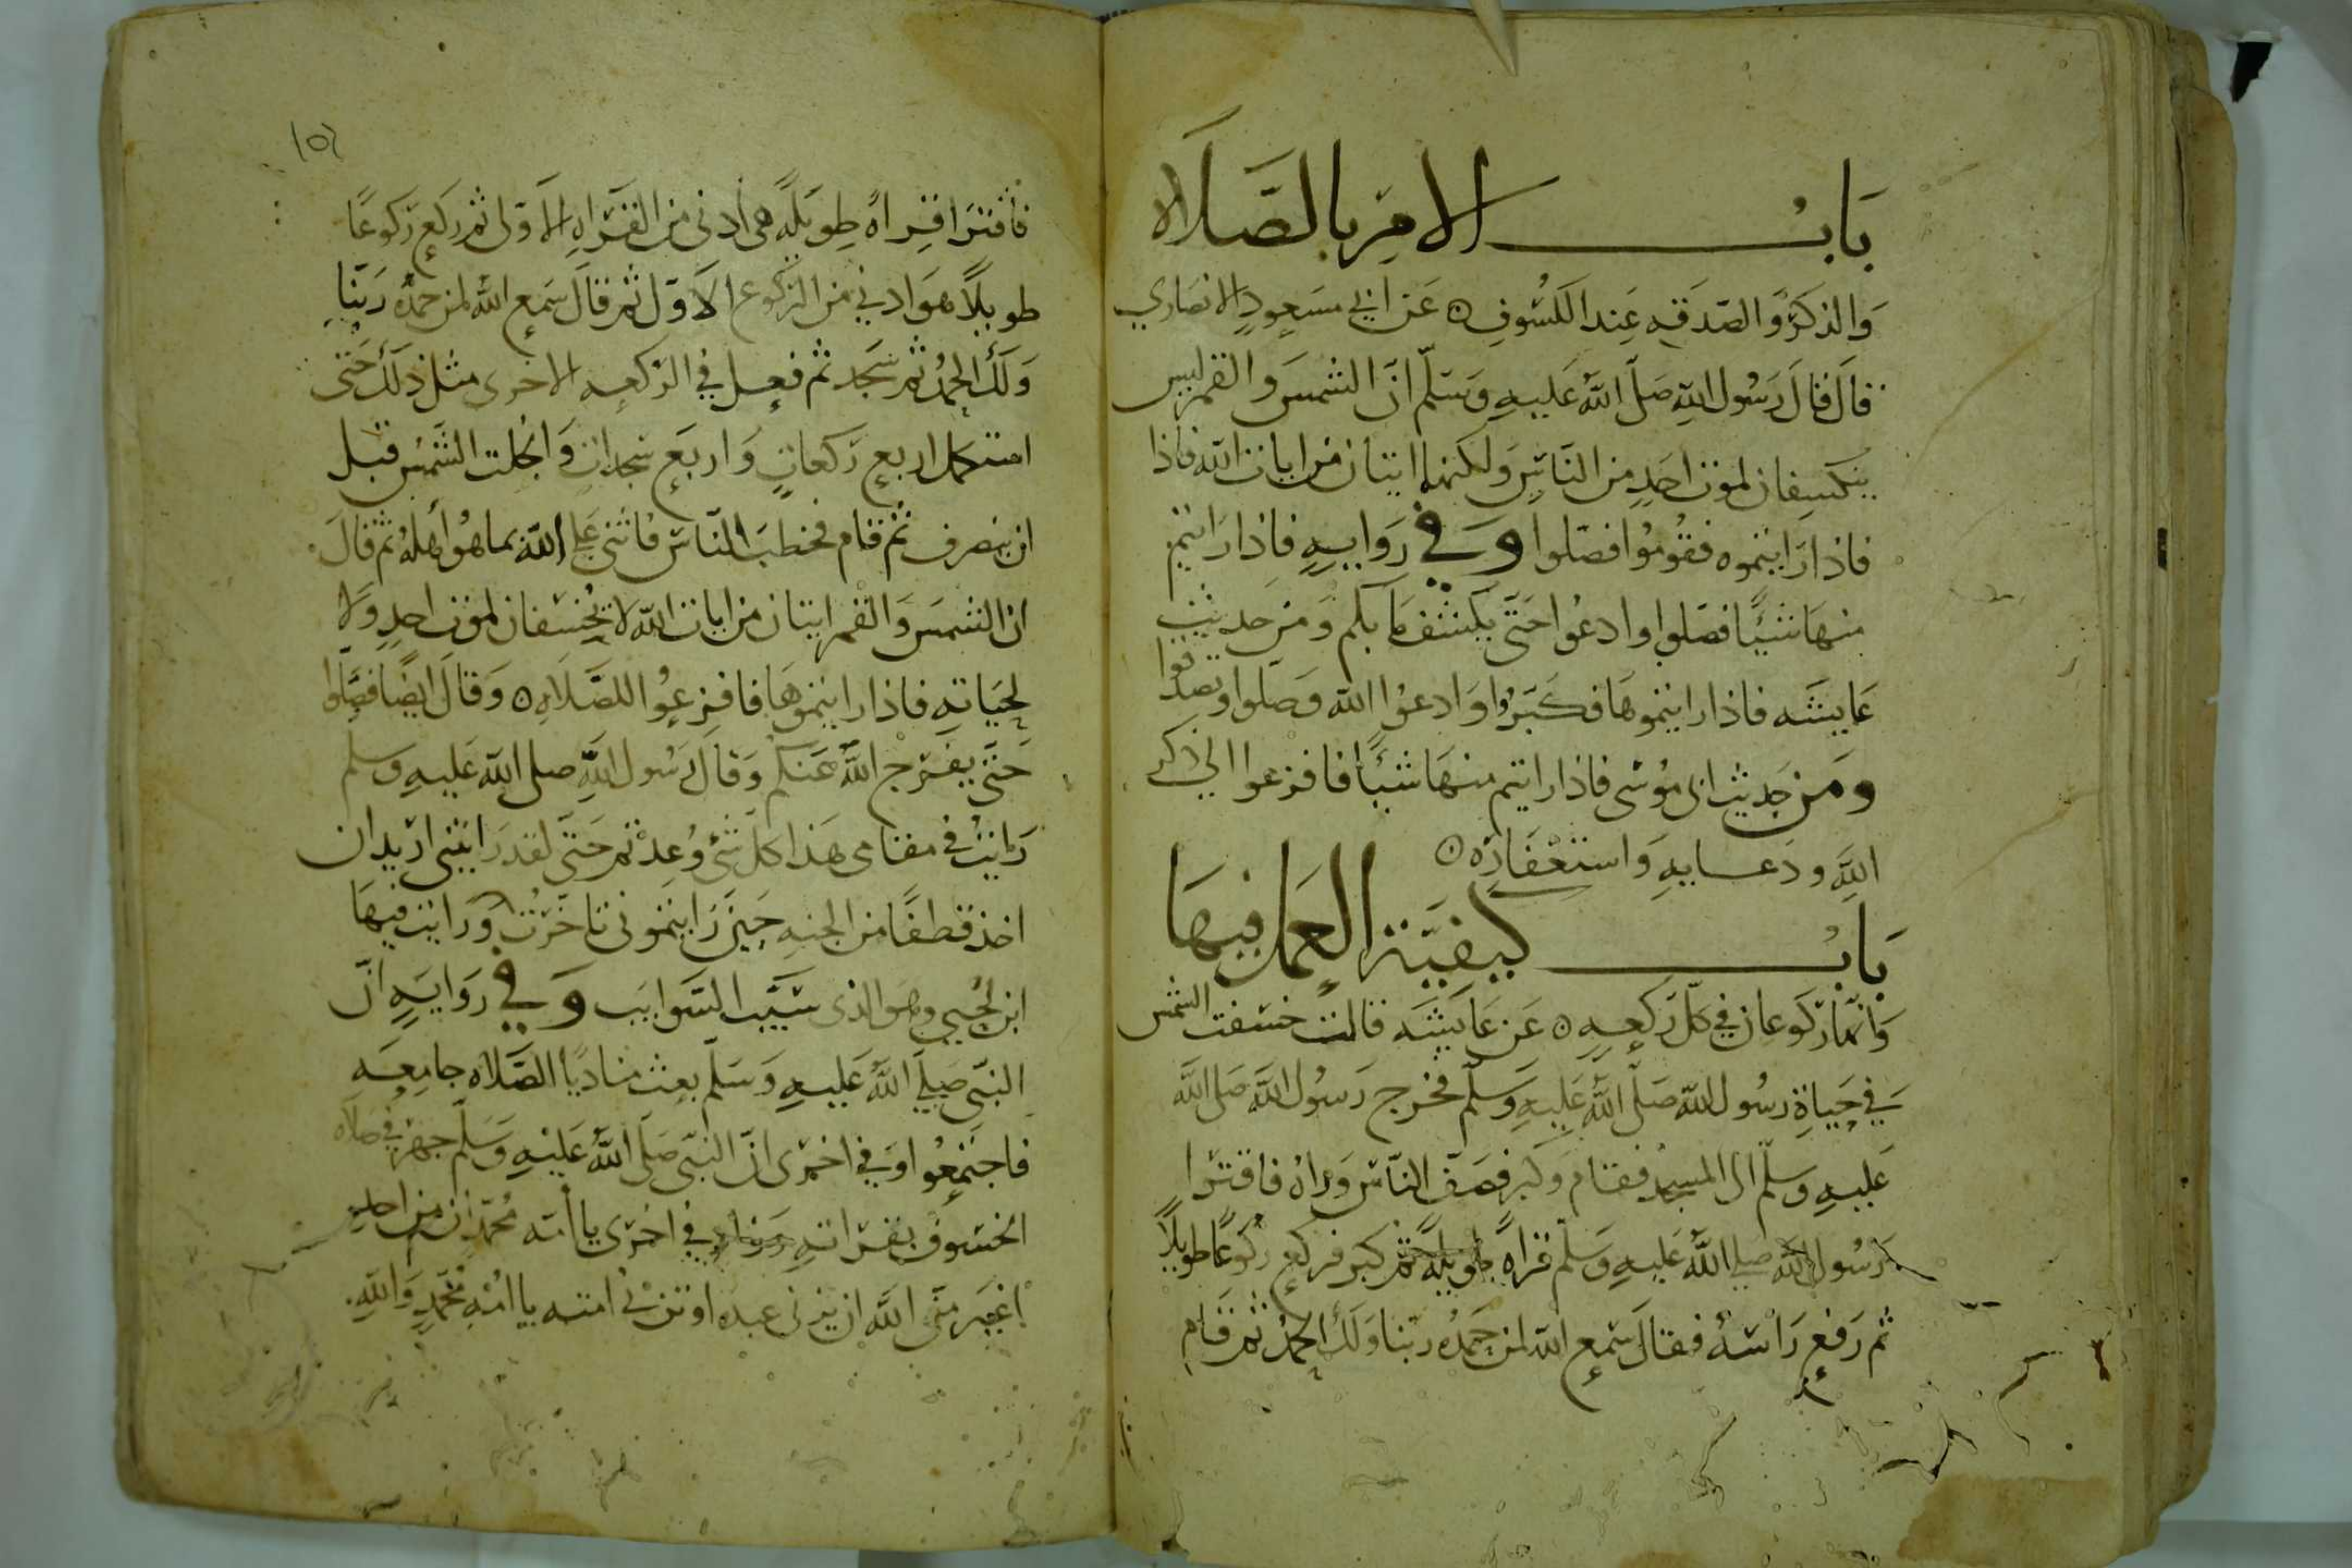 باب الامر بالصلاة
والذكر والصدقه عند الكسوف ٥ عن ابي مسعود الانصاري
قال قال رسول الله صلى الله عليه وسلم ان الشمس والقمر ليس
ينكسفان لموت احد من الناس ولكنهما ايتان من ايات الله فاذا
فاذا رايتموه فقوموا فصلوا وفي روايه فاذا رايتم
منها شيئا فصلوا وادعوا حتى يكشف ما بكم ومن حديث
عايشه فاذا رايتموها فكبروا وادعوا الله وصلوا وتصدقوا
ومن حديث ابى موسى فاذا رايتم منها شيئا فافزعوا الى ذكر
الله ودعايه واستغفاره ٥
باب كيفية العمل فيها
وانها ركوعان في كل ركعه ٥ عن عايشه قالت خسفت الشمس
في حياة رسول الله صلى الله عليه وسلم فخرج رسول الله صلى الله
عليه وسلم الى المسجد فقام وكبر فصف الناس وراه فاقترا
رسول الله صلى الله عليه وسلم قراة طويلة ثم كبر فركع ركوعا طويلا
ثم رفع راسه فقال سمع الله لمن حمده ربنا ولك الحمد ثم قام
١٥٢
فاقترا قراة طويلة هي أدنى من القراه الاولى ثم ركع ركوعا
طويلا هو ادنى من الركوع الاول ثم قال سمع الله لمن حمده ربنا
ولك الحمد ثم سجد ثم فعل في الركعه الاخرى مثل ذلك حتى
استكمل اربع ركعات واربع سجدات وانجلت الشمس قبل
ان ينصرف ثم قام فخطب الناس فاثنى على الله بما هو أهله ثم قال
ان الشمس والقمر ايتان من ايات الله لا يخسفان لموت احد ولا
لحياته فاذا رايتموها فافزعوا للصلاه ٥ وقال ايضا فصلوا
حتى يفرج الله عنكم وقال رسول الله صلى الله عليه وسلم
رايت في مقامي هذا كل شئ وعدتم حتى لقد رايتنى اريد ان
اخذ قطفا من الجنه حين رايتمونى تاخرت ورايت فيها
ابن لحيي وهو الذى سيب السوايب وفي روايه ان
النبى صلى الله عليه وسلم بعث مناديا الصلاه جامعه
فاجتمعوا وفي اخرى ان النبى صلى الله عليه وسلم جهر في صلاه
الخسوف بقراته وفي اخرى يا أمة محمد ان من احد
اغير من الله ان يزنى عبده او تزنى امته يا امة محمد والله